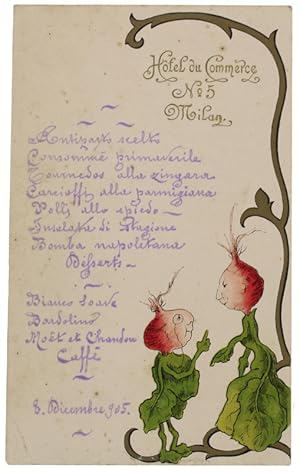 Hôtel du Commerce
No 5
Milan.
Antipasto scelto
Consommé primaverile
Tournedos alla zingara
Carcioffi alla parmigiana
Polli allo spiedo
Insalate di Stagione
Bomba napoletana
Desserts
Bianco Soave
Bardolino
Moët et Chandon
Caffè
8. Dicembre 905.